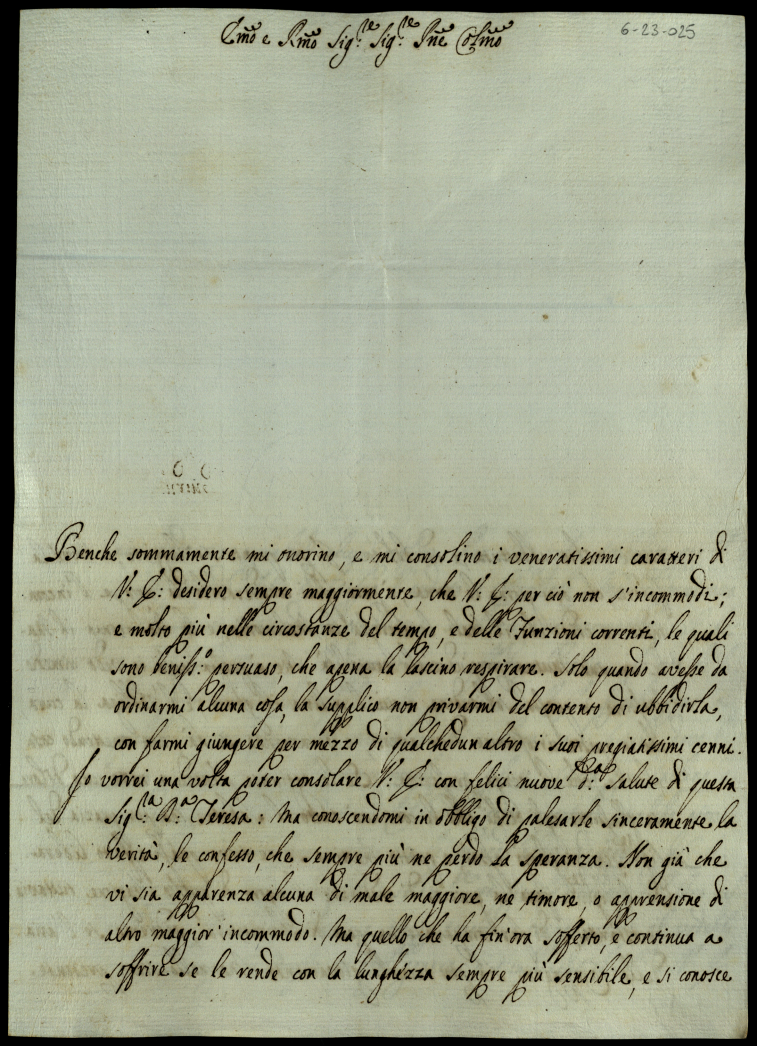 Illmo e Rmo Sig.re Sig.re Pne Colmo
6-23-025
Benche sommamente mi onorino, e mi consolino i veneratissimi caratteri di
V: I: desidero sempre maggiormente, che V: I: per ciò non s'incommodi;
e molto più nelle circostanze del tempo, e delle Funzioni correnti, le quali
sono beniss:o persuaso, che apena la lascino respirare. Solo quando avesse da
ordinarmi alcuna cosa, la supplico non privarmi del contento di ubbidirla,
con farmi giungere per mezzo di qualchedun altro i suoi pregiatissimi cenni.
Io vorrei una volta poter consolare V: I: con felici nuove d.a salute di questa
Sig.ra B.a Teresa: Ma conoscendomi in obbligo di palesarle sinceramente la
verità, le confesso, che sempre più ne perdo la speranza. Non già che
vi sia apparenza alcuna di male maggiore, ne timore, o apprensione di
altro maggior' incommodo. Ma quello che ha fin'ora sofferto, e continua a
soffrire se le rende con la lunghezza sempre più sensibile, e si conosce